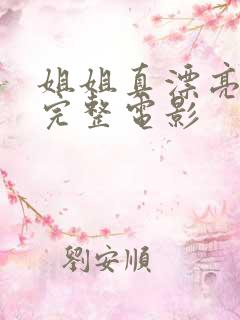 姐姐真漂亮
完整电影
劉安順